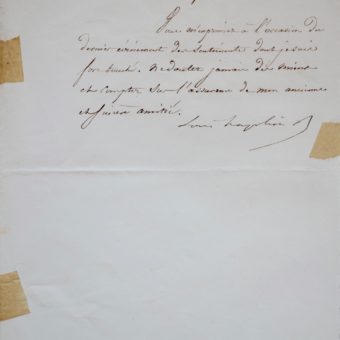 Vous m'exprimez à l'occasion du
dernier événement des sentiments dont je suis
fort touché. Ne doutez jamais des miens
et comptez sur l'assurance de mon ancienne
et sincère amitié.
Louis Napoléon